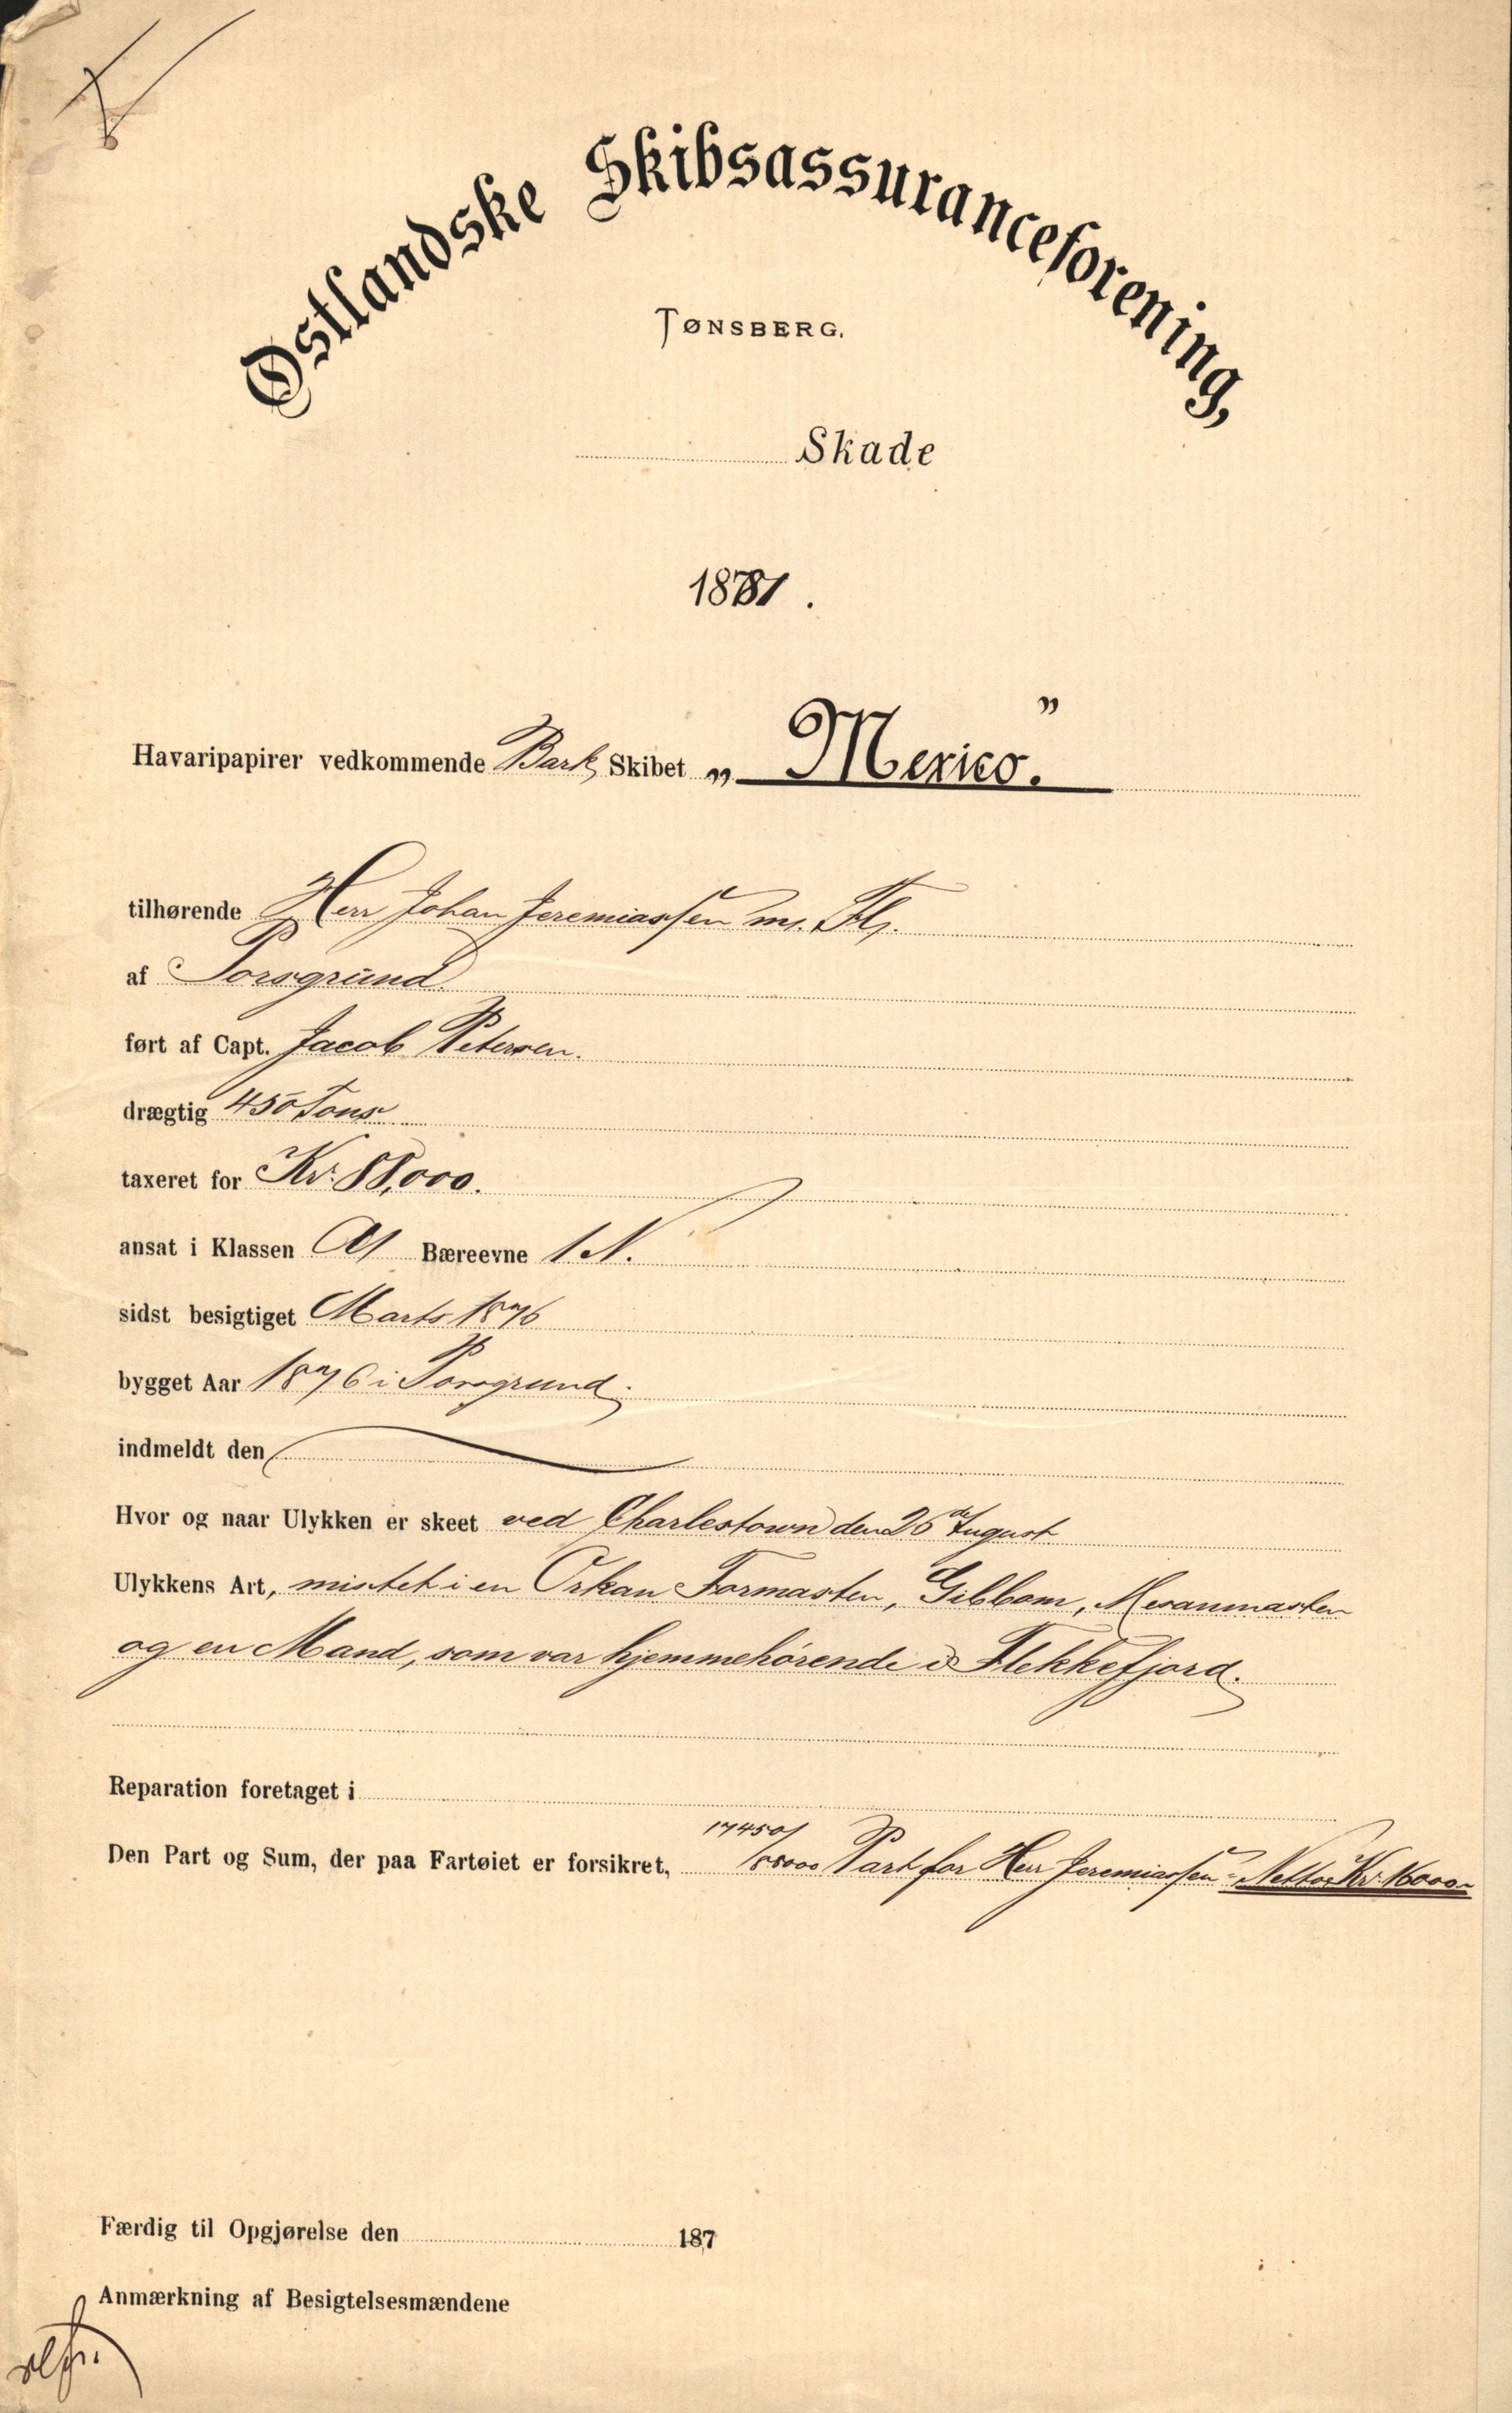 Østlandske Skibsassuranceforening,
TØNSBERG.
Skade
1881.
Havaripapirer vedkommende Bark Skibet „Mexico."
tilhørende Herr Johan Jeremiassen m. Fl.
af Porsgrund
ført af Capt. Jacob Petersen.
drægtig 450 Tons
taxeret for Kr. 88,000.
ansat i Klassen A1 Bæreevne 1 N.
sidst besigtiget Marts 1876
bygget Aar 1876 i Porsgrund.
indmeldt den
Hvor og naar Ulykken er skeet ved Charlestown den 26 August
Ulykkens Art, mistet i en Orkan Formasten, Gibbom, Mesanmasten
og en Mand, som var hjemmehørende i Flekkefjord.
Reparation foretaget i
Den Part og Sum, der paa Fartøiet er forsikret, 17450/88000 Part for Herr Jeremiassen = Netto Kr. 16000
Færdig til Opgjørelse den 187
Anmærkning af Besigtelsesmændene